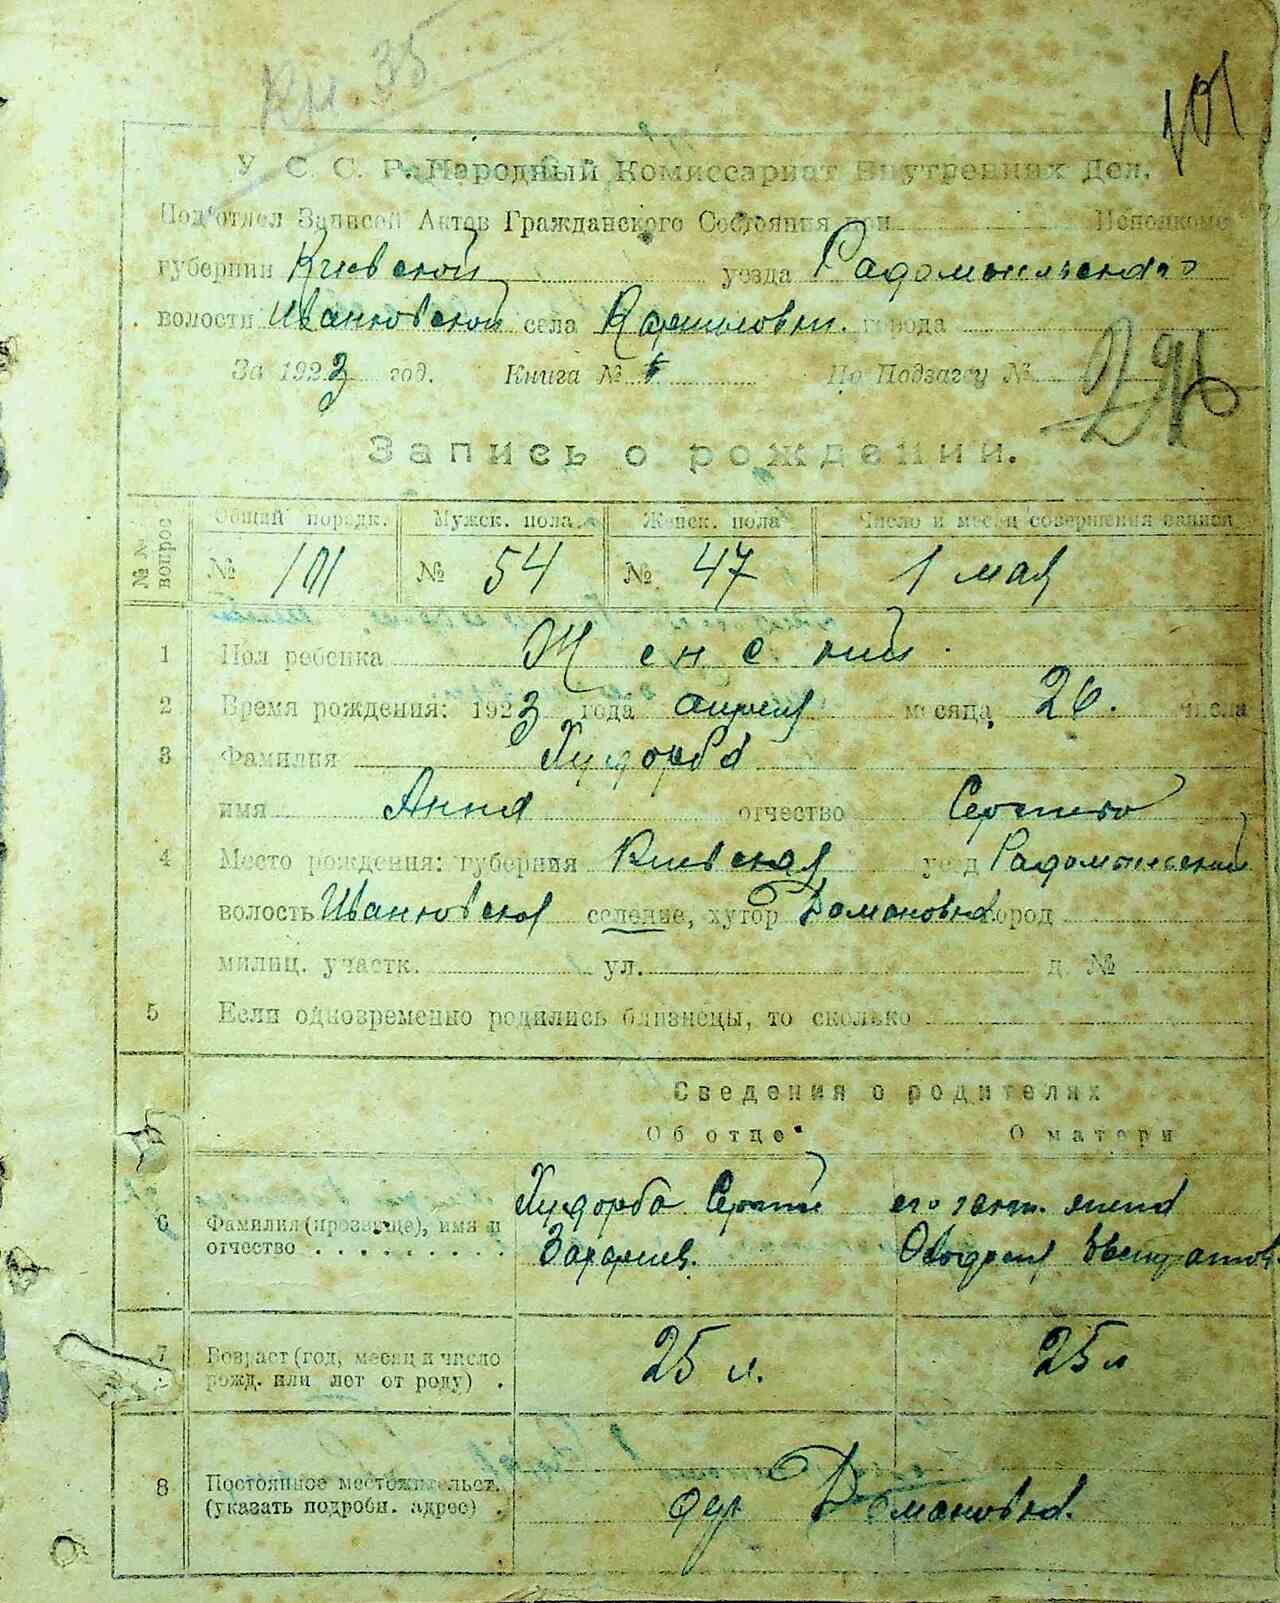 Кн. 35
101
У. С. С. Р. Народный Комиссариат Внутренних Дел.
Под'отдел Записей Актов Гражданского Состояния при Исполкоме
губернии Киевской уезда Радомысльского
волости Иванковской села города
За 1923 год. Книга № По Подзагсу №
Запись о рождении.
№№ вопрос
Общий порядк. Мужск. пола Женск. пола Число и месяц совершения записи
№ 101 № 54 № 47 1 мая
1 Пол ребенка Женский
2 Время рождения: 1923 года апреля месяца 26. числа
3 Фамилия
имя Анна отчество
4 Место рождения: губерния Киевская уезд Радомысльский
волость Иванковская селение, хутор Домановка город
милиц. участк. ул. д. №
5 Если одновременно родились близнецы, то сколько
Сведения о родителях
Об отце О матери
6 Фамилия (прозвище), имя и
отчество
Сергий его зак. жена
7 Возраст (год, месяц и число
рожд. или лет от роду)
25 л. 25 л
8 Постоянное местожительст.
(указать подробн. адрес)
дер. Домановка.